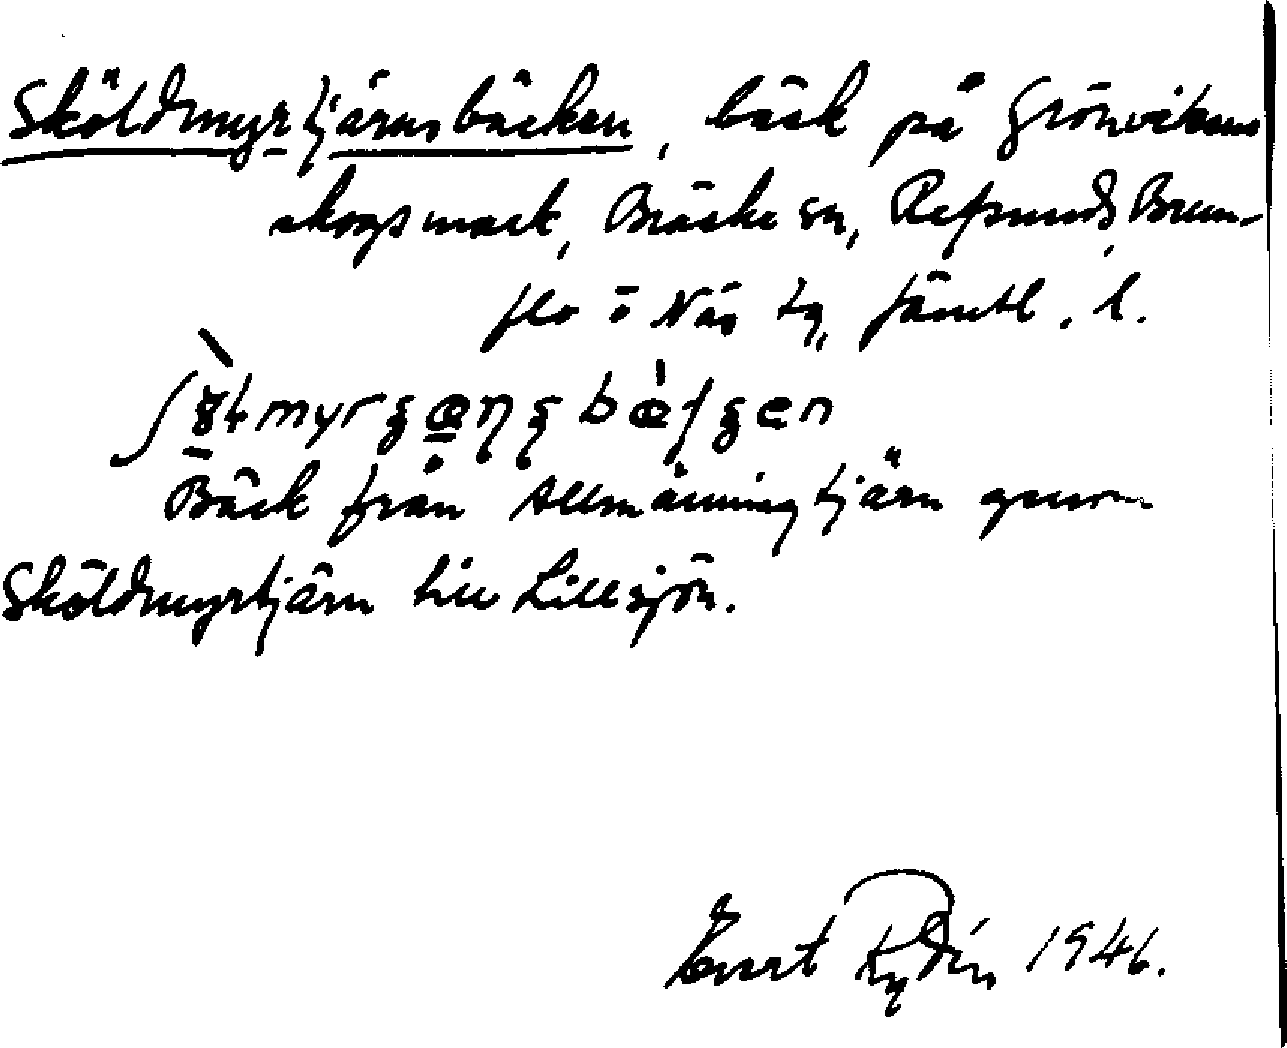 Sköldmyrtjärnsbäcken, bäck på Grönvikens
skogsmark, Bräcke sn, Refsunds, Brun-
flo o Näs tg, Jämtl. l.
Bäck från Allmänningtjärn genom
Sköldmyrtjärn till Lillsjön.
Evert Rydén 1946.